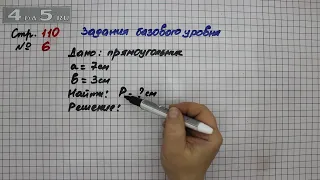 4 на 5.ru
Стр. 110 Задания базового уровня
№ 6
Дано: прямоугольник
a = 7см
b = 3см
Найти: P - ? см
Решение: